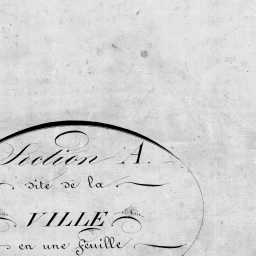 Section A.
dite de la
VILLE
en une feuille